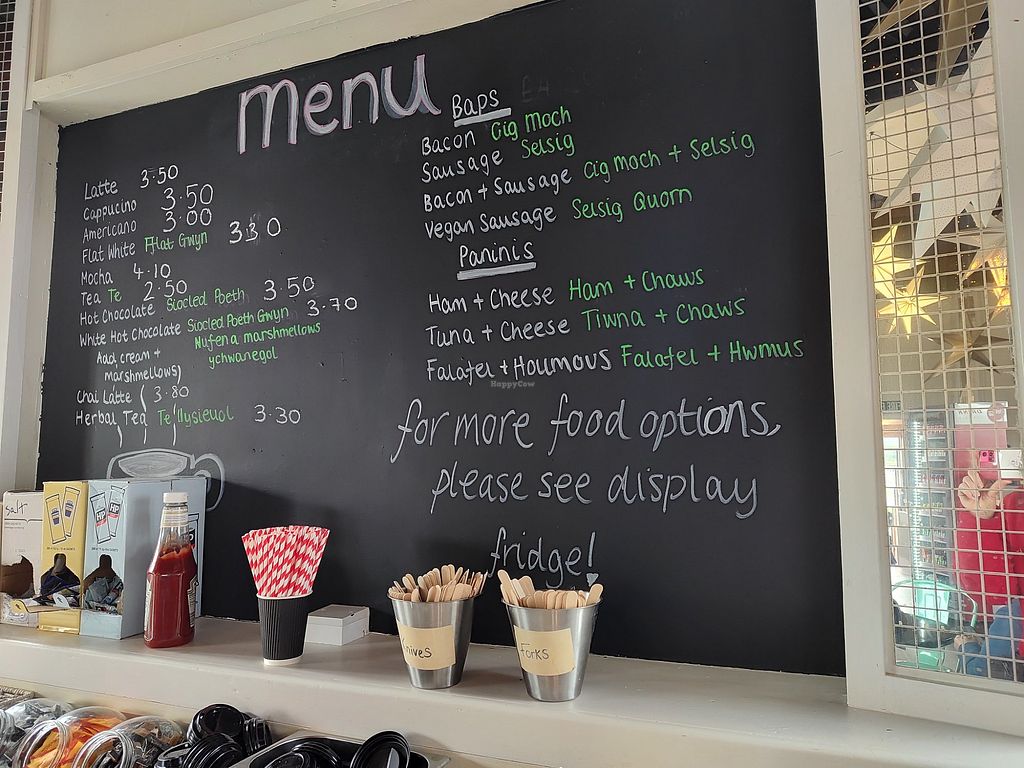 menu
Latte 3.50
Cappucino 3.50
Americano 3.00
Flat White Flat Gwyn 3.30
Mocha 4.10
Tea Te 2.50
Hot Chocolate Siocled Poeth 3.50
White Hot Chocolate Siocled Poeth Gwyn 3.70
Add cream + marshmellows
Nufen a marshmellows ychwanegol
Chai Latte 3.80
Herbal Tea Te llysieuol 3.30
Baps
Bacon Cig Moch
Sausage Selsig
Bacon + Sausage Cig Moch + Selsig
Vegan Sausage Selsig Quorn
Paninis
Ham + Cheese Ham + Chaws
Tuna + Cheese Tiwna + Chaws
Falafel + Houmous Falafel + Hwmus
for more food options,
please see display
fridge!
HappyCow
salt
HP
HP
Knives
Forks